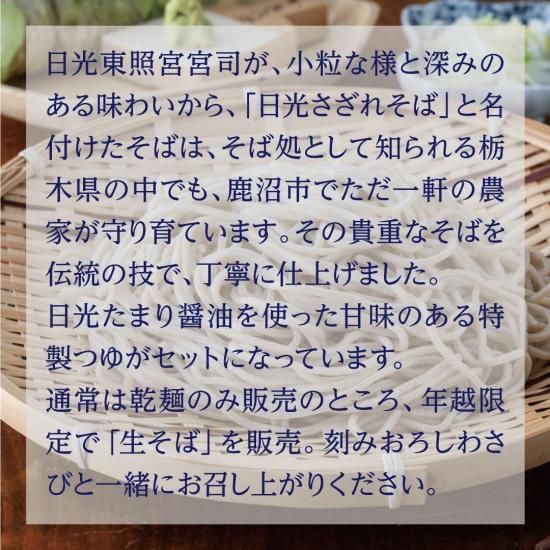 日光東照宮宮司が、小粒な様と深みの
ある味わいから、「日光さざれそば」と名
付けたそばは、そば処として知られる栃
木県の中でも、鹿沼市でただ一軒の農
家が守り育ています。その貴重なそばを
伝統の技で、丁寧に仕上げました。
日光たまり醤油を使った甘味のある特
製つゆがセットになっています。
通常は乾麺のみ販売のところ、年越限
定で「生そば」を販売。刻みおろしわさ
びと一緒にお召し上がりください。